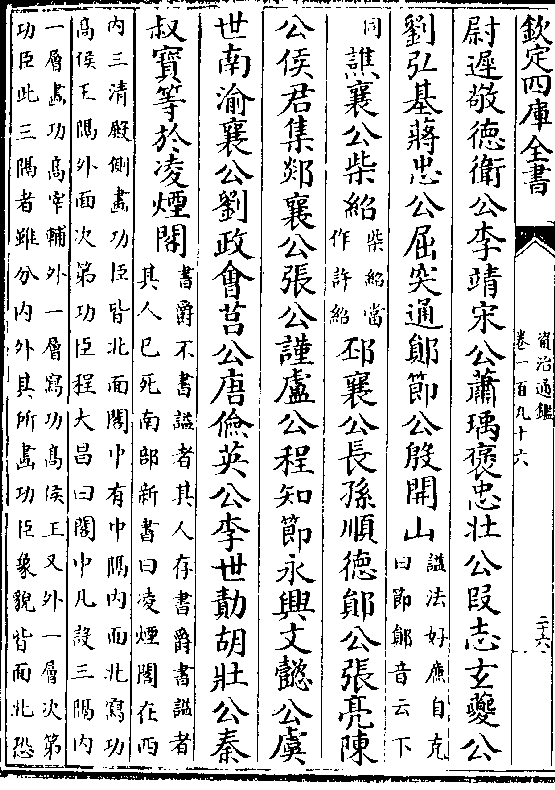 欽定四庫全書
資治通鑑
卷一百九十六
二十六
尉遲敬德衛公李靖宋公蕭瑀褒忠壯公叚志玄夔公
劉弘基蔣忠公屈突通鄖節公殷開山
諡法好廉自克
曰節鄖音云下
同
譙襄公柴紹
柴紹當
作許紹
邳襄公長孫順徳鄖公張亮陳
公侯君集郯襄公張公謹盧公程知節永興文懿公虞
世南渝襄公劉政會莒公唐儉英公李世勣胡壯公秦
叔寳等於凌煙閣
書爵不書諡者其人存書爵書諡者
其人已死南部新書曰凌煙閣在西
内三清殿側畫功臣皆北面閣中有中隔内面北寫功
髙侯王隔外面次第功臣程大昌曰閣中凡設三隔内
一層畫功髙宰輔外一層寫功髙侯王又外一層次第
功臣此三隔者雖分内外其所畫功臣象貌皆面北恐